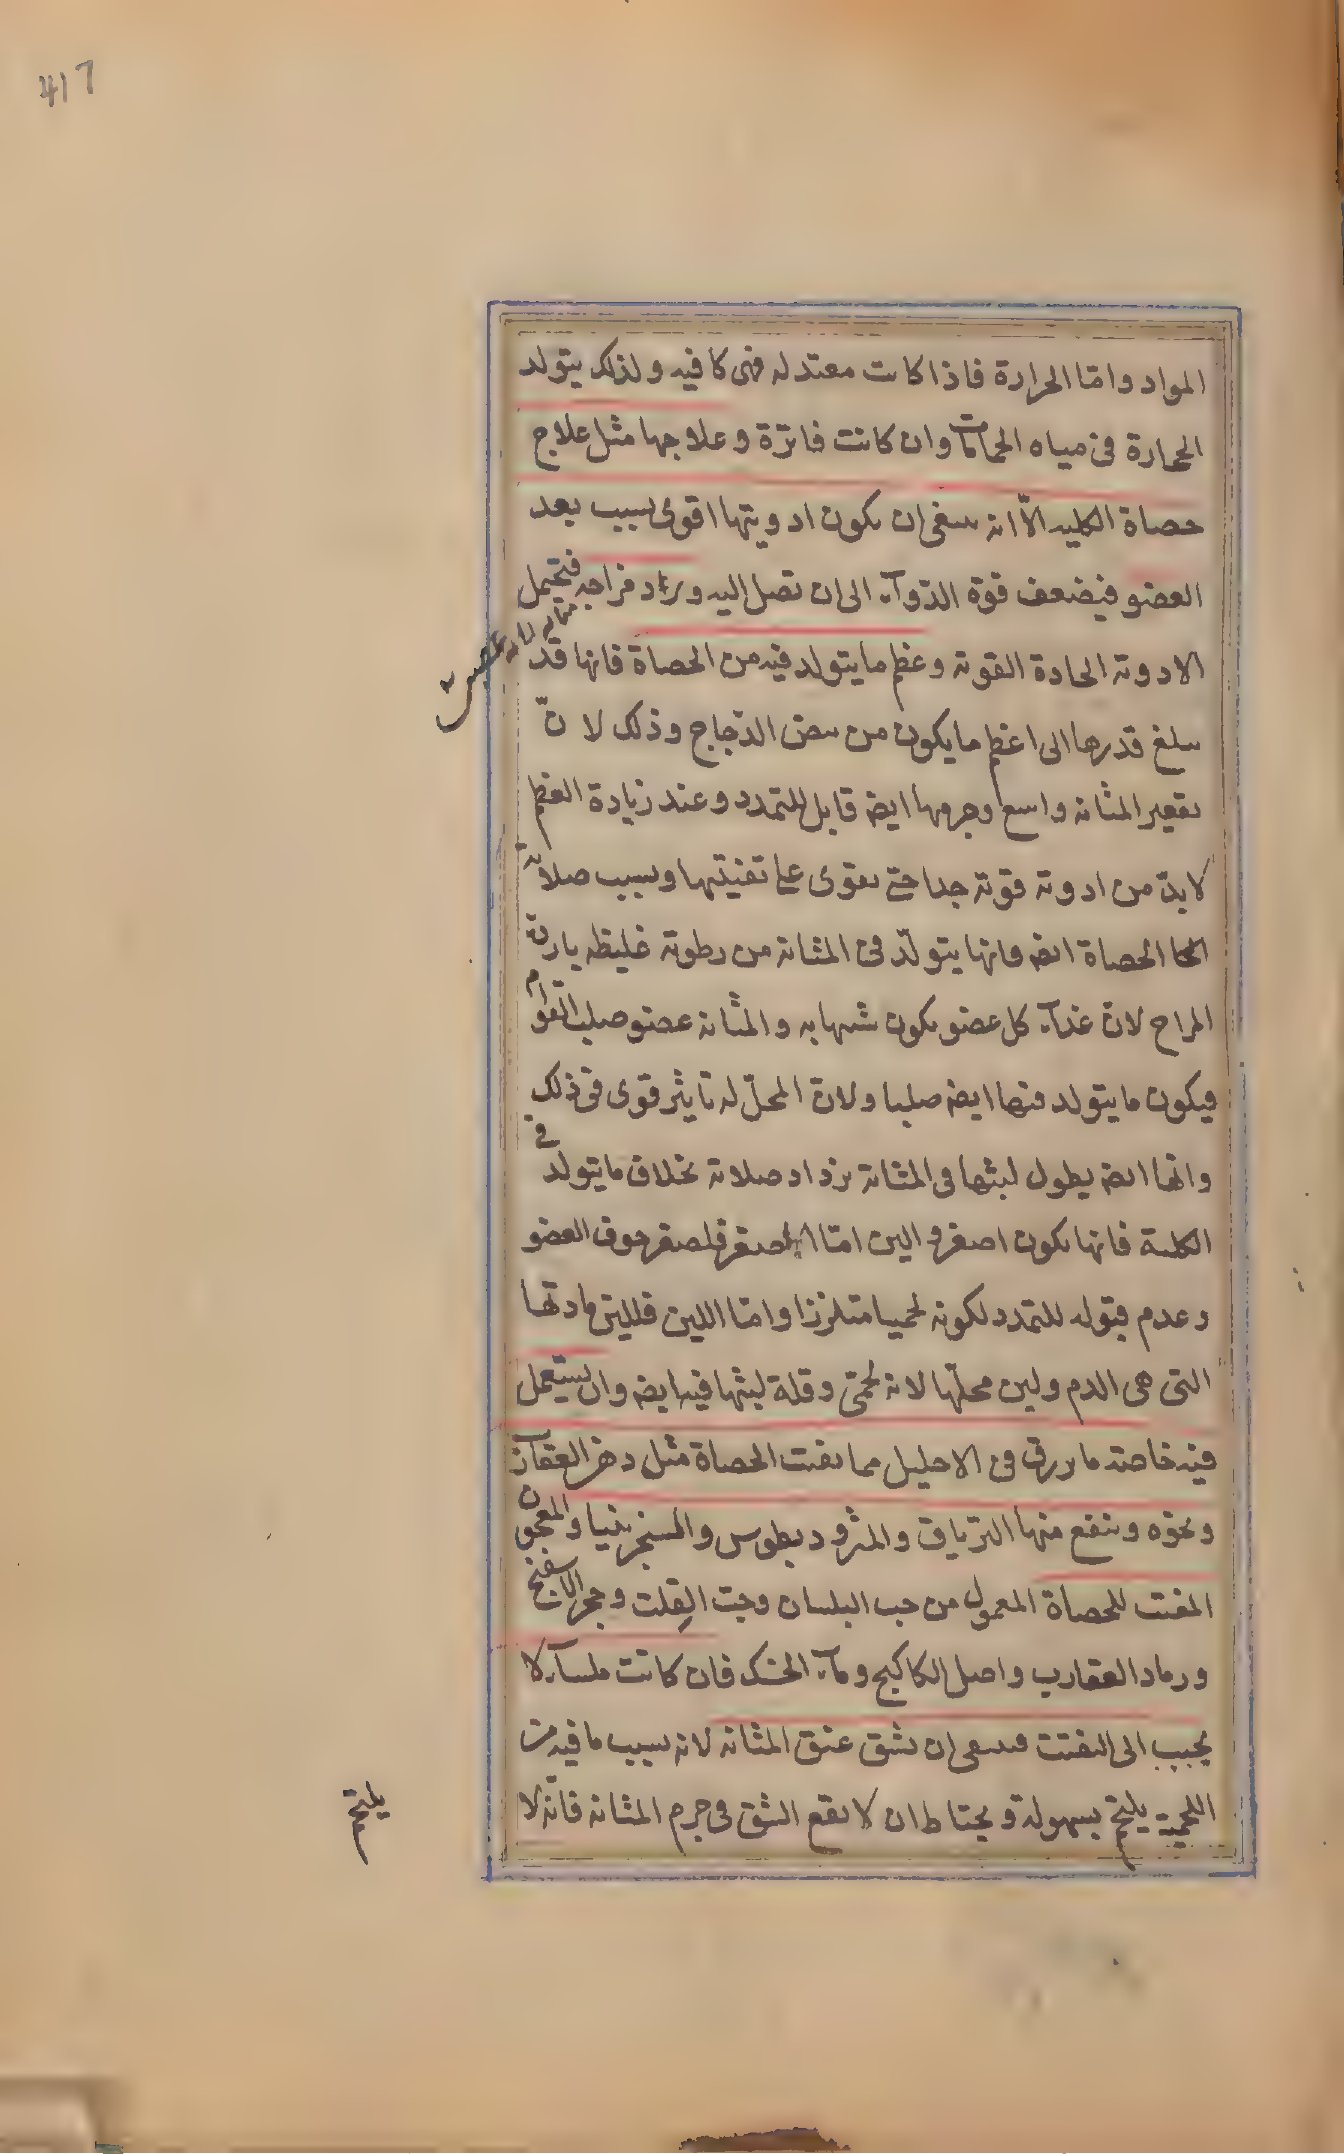 417
المواد واما الحرارة فاذا كانت معتدله فهى كافيه ولذلك يتولد
الحجارة فى مياه الحمامات وان كانت فاترة وعلاجها مثل علاج
حصاة الكليه الّا انه ينبغى ان يكون ادويتها اقوى بسبب بعد
العضو فيضعف قوة الدوآء الى ان تصل اليه وبرد مزاجه فتحتمل
الادوية الحادة القوية وعظم ما يتولد فيه من الحصاة فانها قد
يبلغ قدرها الى اعظم ما يكون من بيض الدّجاج وذلك لانّ
تقعير المثانه واسع وجرمها ايضا قابل للتمدد وعند زيادة العظم
لا بدّ من ادوية قوية جدا حتى يقوى على تفتيتها وبسبب صلابة
الحصاة ايضا فانها يتولّد فى المثانه من رطوبة غليظه باردة
المزاج لانّ غذآء كل عضو يكون شبيها به والمثانه عضو صلب القوام
فيكون ما يتولد فيها ايضا صلبا ولانّ المحلّ له تاثير قوى فى ذلك
وانها ايضا يطول لبثها فى المثانه يزداد صلابة بخلاف ما يتولد فى
الكلية فانها يكون اصغر والين امّا الصغر فلصغر جوف العضو
وعدم قبوله للتمدد لكونه لحميا متلززا وامّا اللين فللين مادتها
التى هى الدم ولين محلّها لانه لحمىّ وقلة لبثها فيه ايضا وان يستعمل
فيه خاصة ما يزرق فى الاحليل مما يفتت الحصاة مثل دهن العقارب
ونحوه وينفع منها الترياق والمثروديطوس والسنجرينيا والمعجون
المفتت للحصاة المعمول من حب البلسان وحبّ القلت وحجر الاسفنج
ورماد العقارب واصل الكاكنج ومآء الحسك فان كانت ملسآء لا
يجيب الى التفتت فينبغى ان يشق عنق المثانه لانه بسبب ما فيه من
اللحمية يلتحم بسهولة ويحتاط ان لا يقع الشق فى جرم المثانه فانّه لا